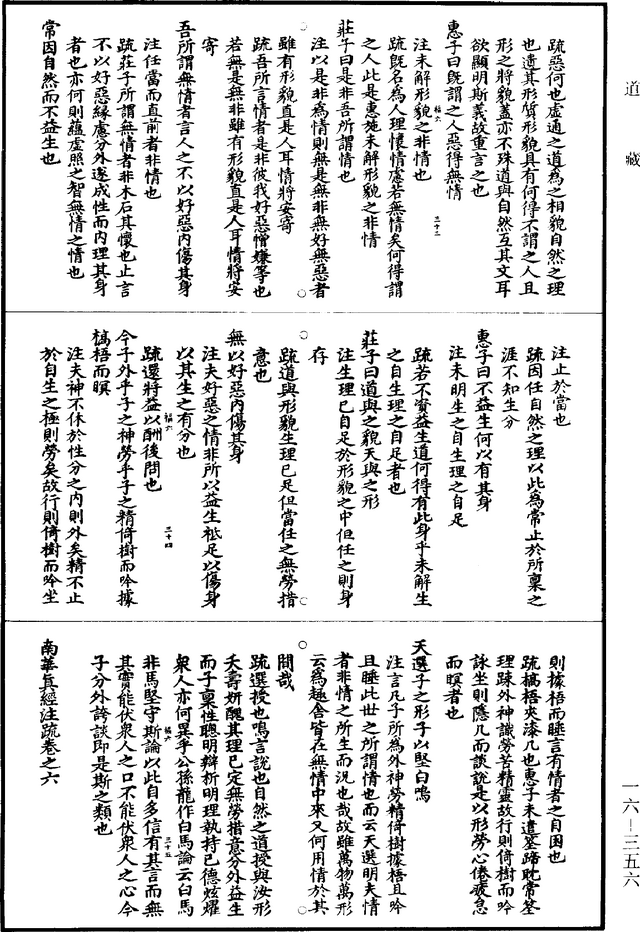 道藏
疏惡何也虛通之道為之相貌自然之理
也遺其形質形貌具有何得不謂之人且
形之將貌蓋亦不殊道與自然互其文耳
欲顯明斯義故重言之也
惠子曰既謂之人惡得無情
注未解形貌之非情也
疏既名為人理懷情慮若無情矣何得謂
之人此是惠施未解形貌之非情
莊子曰是非吾所謂情也
注以是非為情則無是無非無好無惡者
雖有形貌直是人耳情將安寄
疏吾所言情者是非彼我好惡憎嫌等也
若無是無非雖有形貌直是人耳情將安
寄
吾所謂無情者言人之不以好惡內傷其身
注任當而直前者非情也
疏莊子所謂無情者非木石其懷也止言
不以好惡緣慮分外遂成性而內理其身
者也亦何則蘊虛照之智無情之情也
常因自然而不益生也
注止於當也
疏因任自然之理以此為常止於所稟之
涯不知生分
惠子曰不益生何以有其身
注未明生之自生理之自足
疏若不資益生道何得有此身乎未解生
之自生理之自足者也
莊子曰道與之貌天與之形
注生理已自足於形貌之中但任之則身
存
疏道與形貌生理已足但當任之無勞措
意也
無以好惡內傷其身
注夫好惡之情非所以益生祗足以傷身
以其生之有分也
疏還將益以酬後問也
今子外乎子之神勞乎子之精倚樹而吟據
槁梧而瞑
注夫神不休於性分之內則外矣精不止
於自生之極則勞矣故行則倚樹而吟坐
則據梧而睡言有情者之自困也
疏槁梧夾漆几也惠子未遺筌蹄耽常筌
理疎外神識勞苦精靈故行則倚樹而吟
詠坐則隱几而談說是以形勞心倦疲怠
而瞑者也
天選子之形子以堅白鳴
注言凡子所為外神勞精倚樹據梧且吟
且睡此世之所謂情也而云天選明夫情
者非情之所生而況他哉故雖萬物萬形
云為趣舍皆在無情中來又何用情於其
間哉
疏選授也鳴言說也自然之道授與汝形
夭壽妍醜其理已定無勞措意分外益生
而子稟性聰明辯析明理執持已德炫燿
衆人亦何異乎公孫龍作白馬論云白馬
非馬堅守斯論以此自多信有其言而無
其實能伏衆人之口不能伏衆人之心今
子分外誇談即是斯之類也
南華真經注疏卷之六
一六—三五六